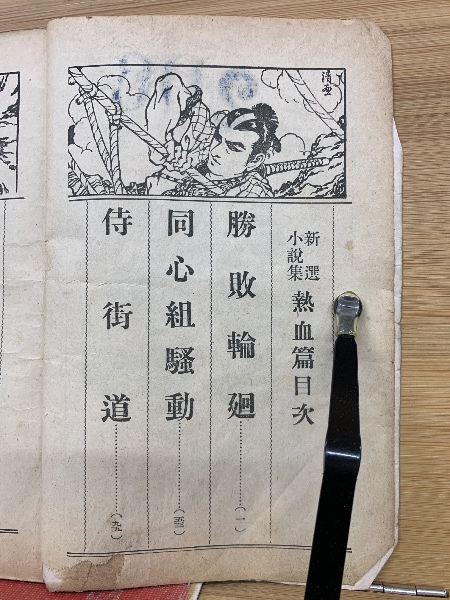 新選
小說集
熱血篇目次
勝敗輪廻……(一)
同心組騷動……
侍街道……(九九)